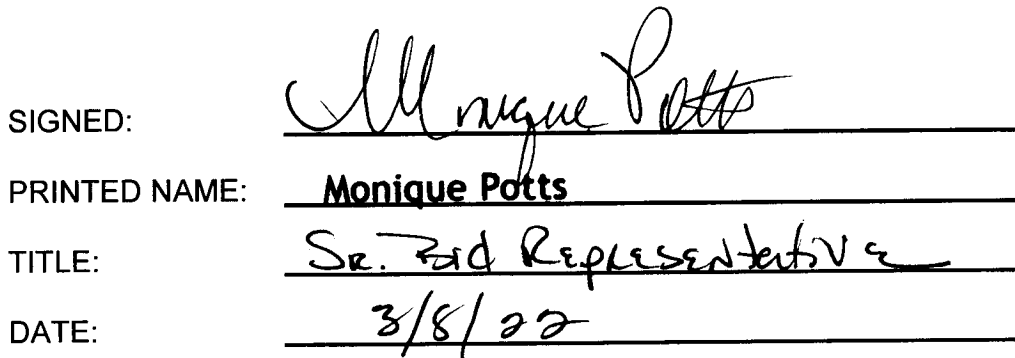 SIGNED: Monique Potts
PRINTED NAME: Monique Potts
TITLE: Sr. Bid Representative
DATE: 3/8/22